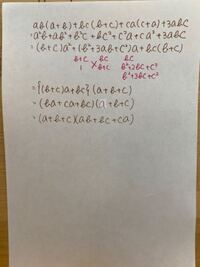 ab(a+b)+bc(b+c)+ca(c+a)+3abc
=a²b+ab²+b²c+bc²+c²a+ca²+3abc
=(b+c)a²+(b²+3ab+c²)a+bc(b+c)
b+c bc bc
1 × b+c b²+2bc+c²
b²+3bc+c²
={(b+c)a+bc}(a+b+c)
=(ba+ca+bc)(a+b+c)
=(a+b+c)(ab+bc+ca)